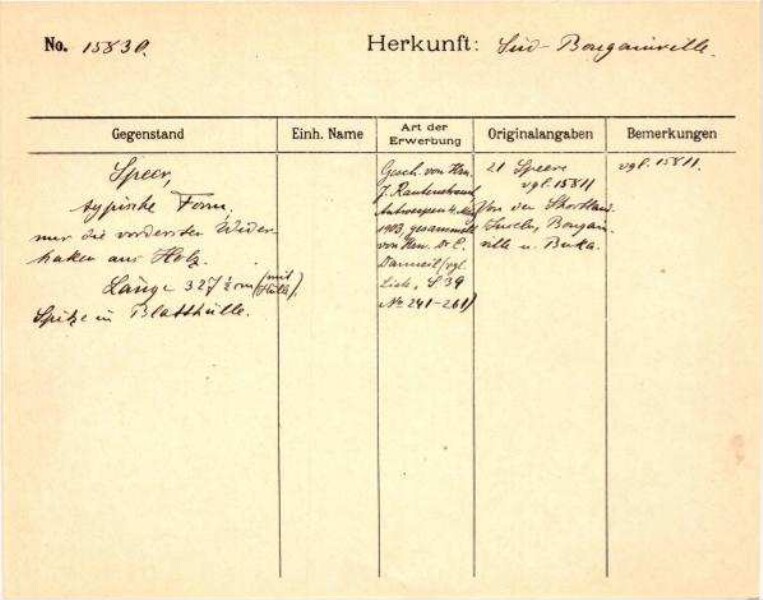 No. 15830.
Herkunft: Süd-Bougainville.
Gegenstand
Einh. Name
Art der Erwerbung
Originalangaben
Bemerkungen
Speer,
typische Form,
nur die vordersten Wider-
haken aus Holz.
Länge 327 cm (mit Hülle).
Spitze in Blatthülle.
Gesch. von Hrn.
J. Rautenstrauch
Antwerpen
1903, gesammelt
von Hrn. Dr. C.
Danneil (vgl.
Liste, S. 39
No 241-261)
21 Speere
vgl. 15811
Von den Shortland-
Inseln, Bougain-
ville u. Buka.
vgl. 15811.